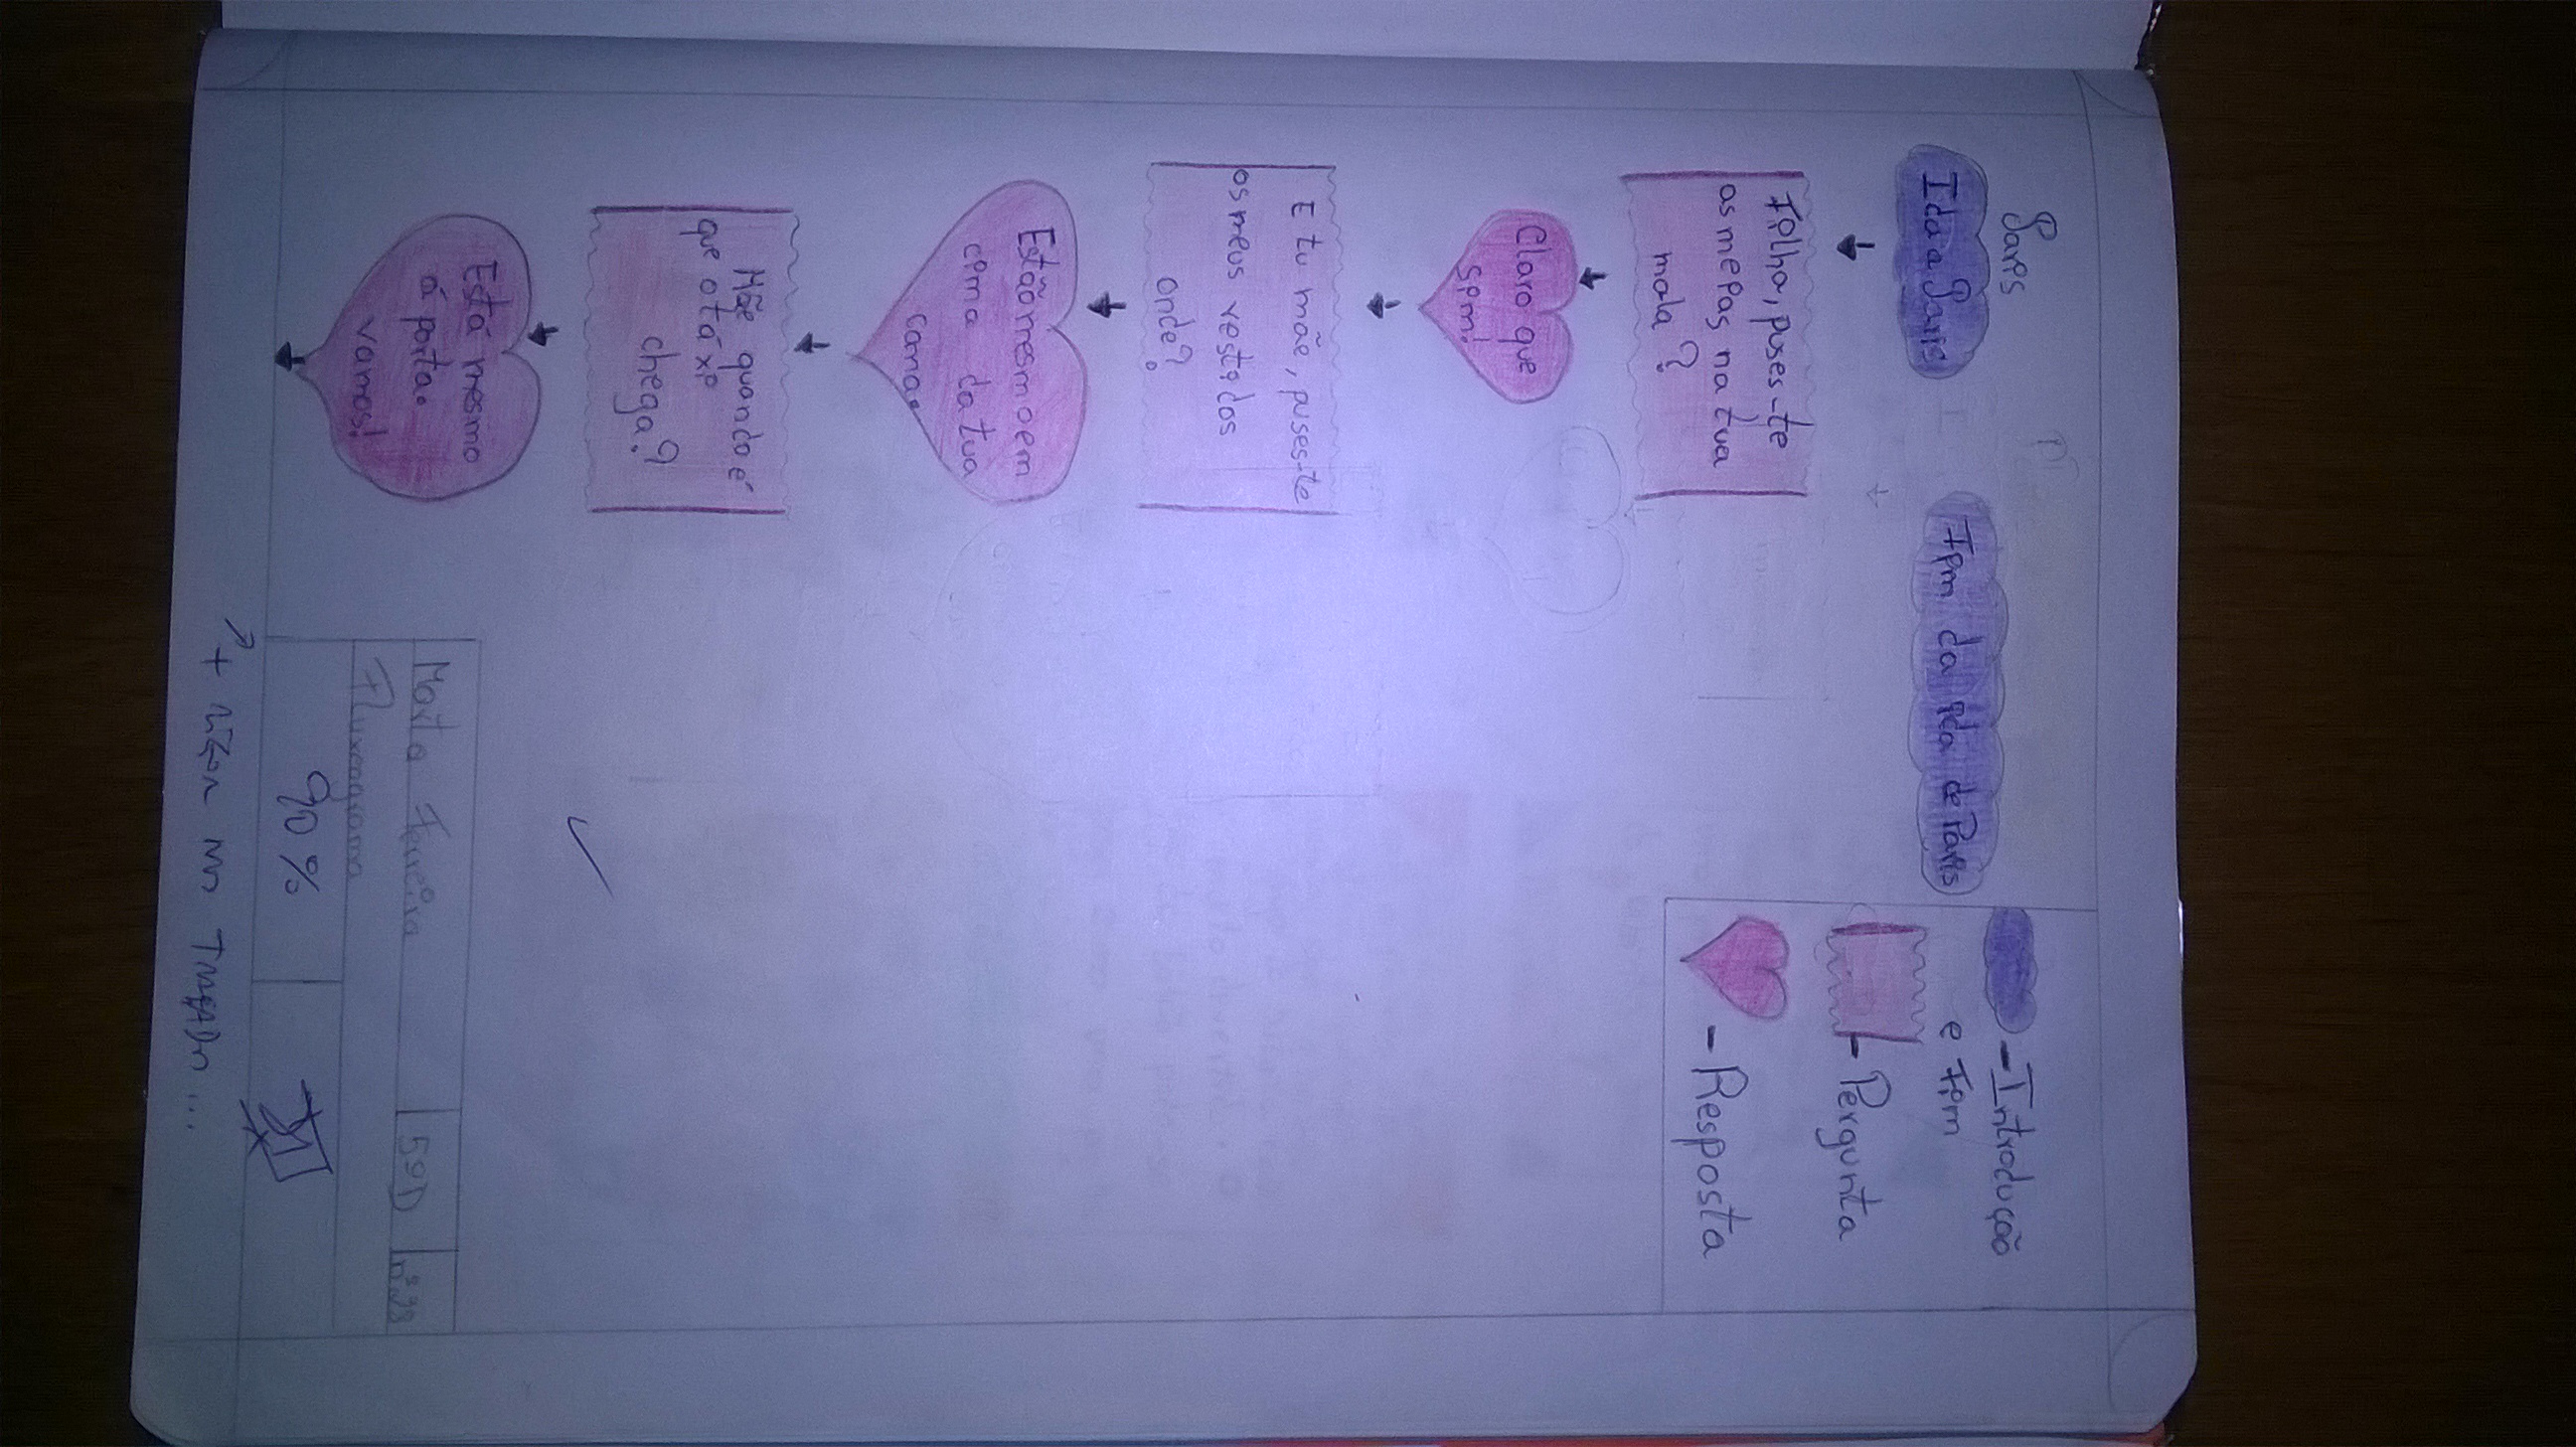 Paris
Ida a Paris
Filha, puses-te
as meias na tua
mala?
Claro que
sim!
E tu mãe, puses-te
os meus vestidos
onde?
Estão mesmo em
cima da tua
cama.
Mãe quando é
que o táxi
chega?
Está mesmo
á porta.
vamos!
Fim da ida de Paris
-Introdução
e Fim
- Pergunta
- Resposta
Marta Ferreira
5ºD
Fluxograma
90%